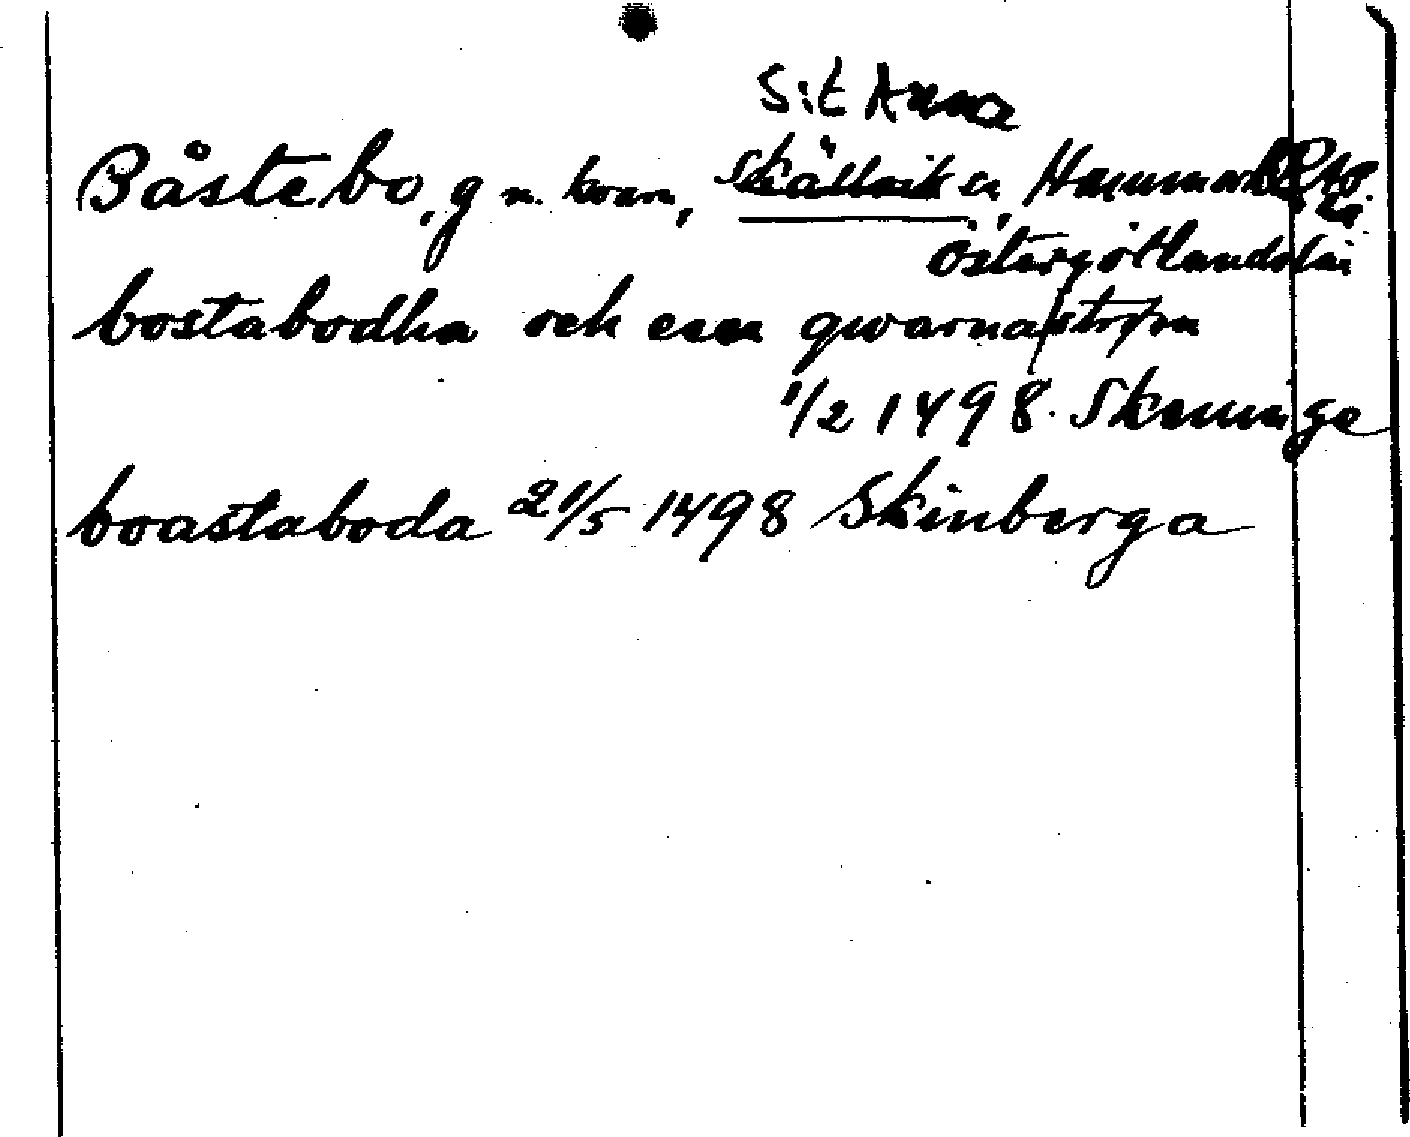 S:t Anna
Båstebo, g n. kvarn, Skällvik sn, Hammark
Östergötlands län
bostabodha och een qwarnastrøm
1/2 1498. Skeninge
boastaboda 21/5 1498 Skinberga